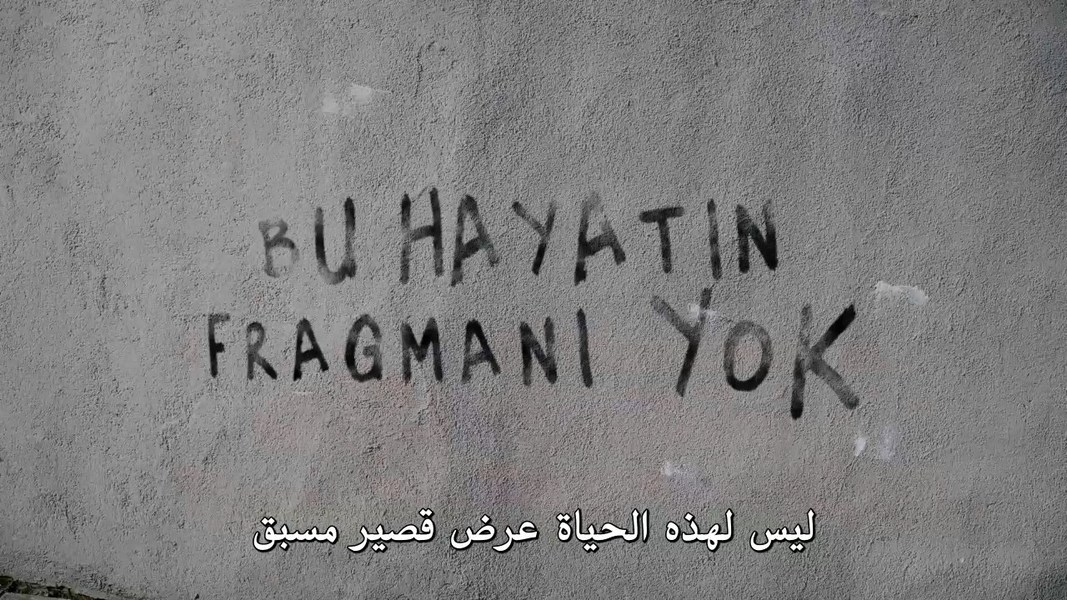 BU HAYATIN
FRAGMANI YOK
ليس لهذه الحياة عرض قصير مسبق